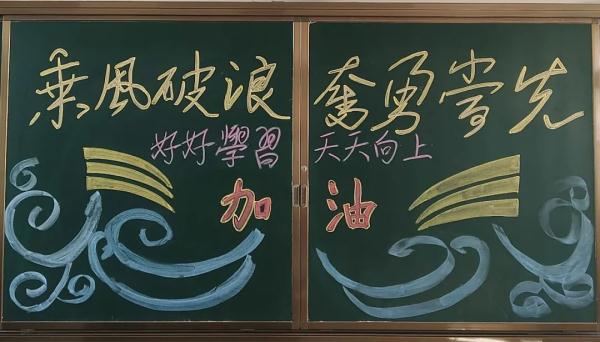 乘風破浪 奮勇當先
好好學習 天天向上
加油